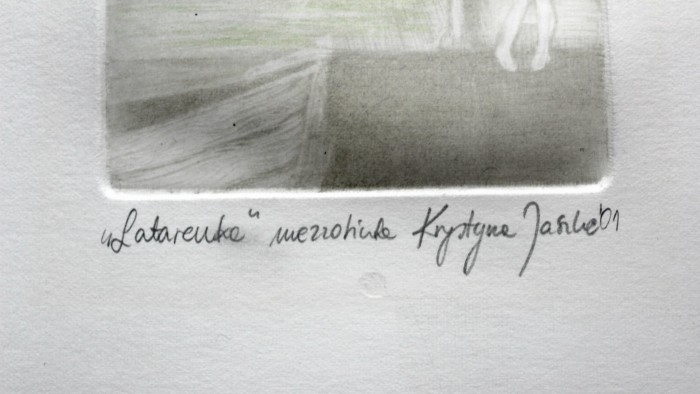 „Latarenka" mezzotinta Krystyna Jaśkie 01